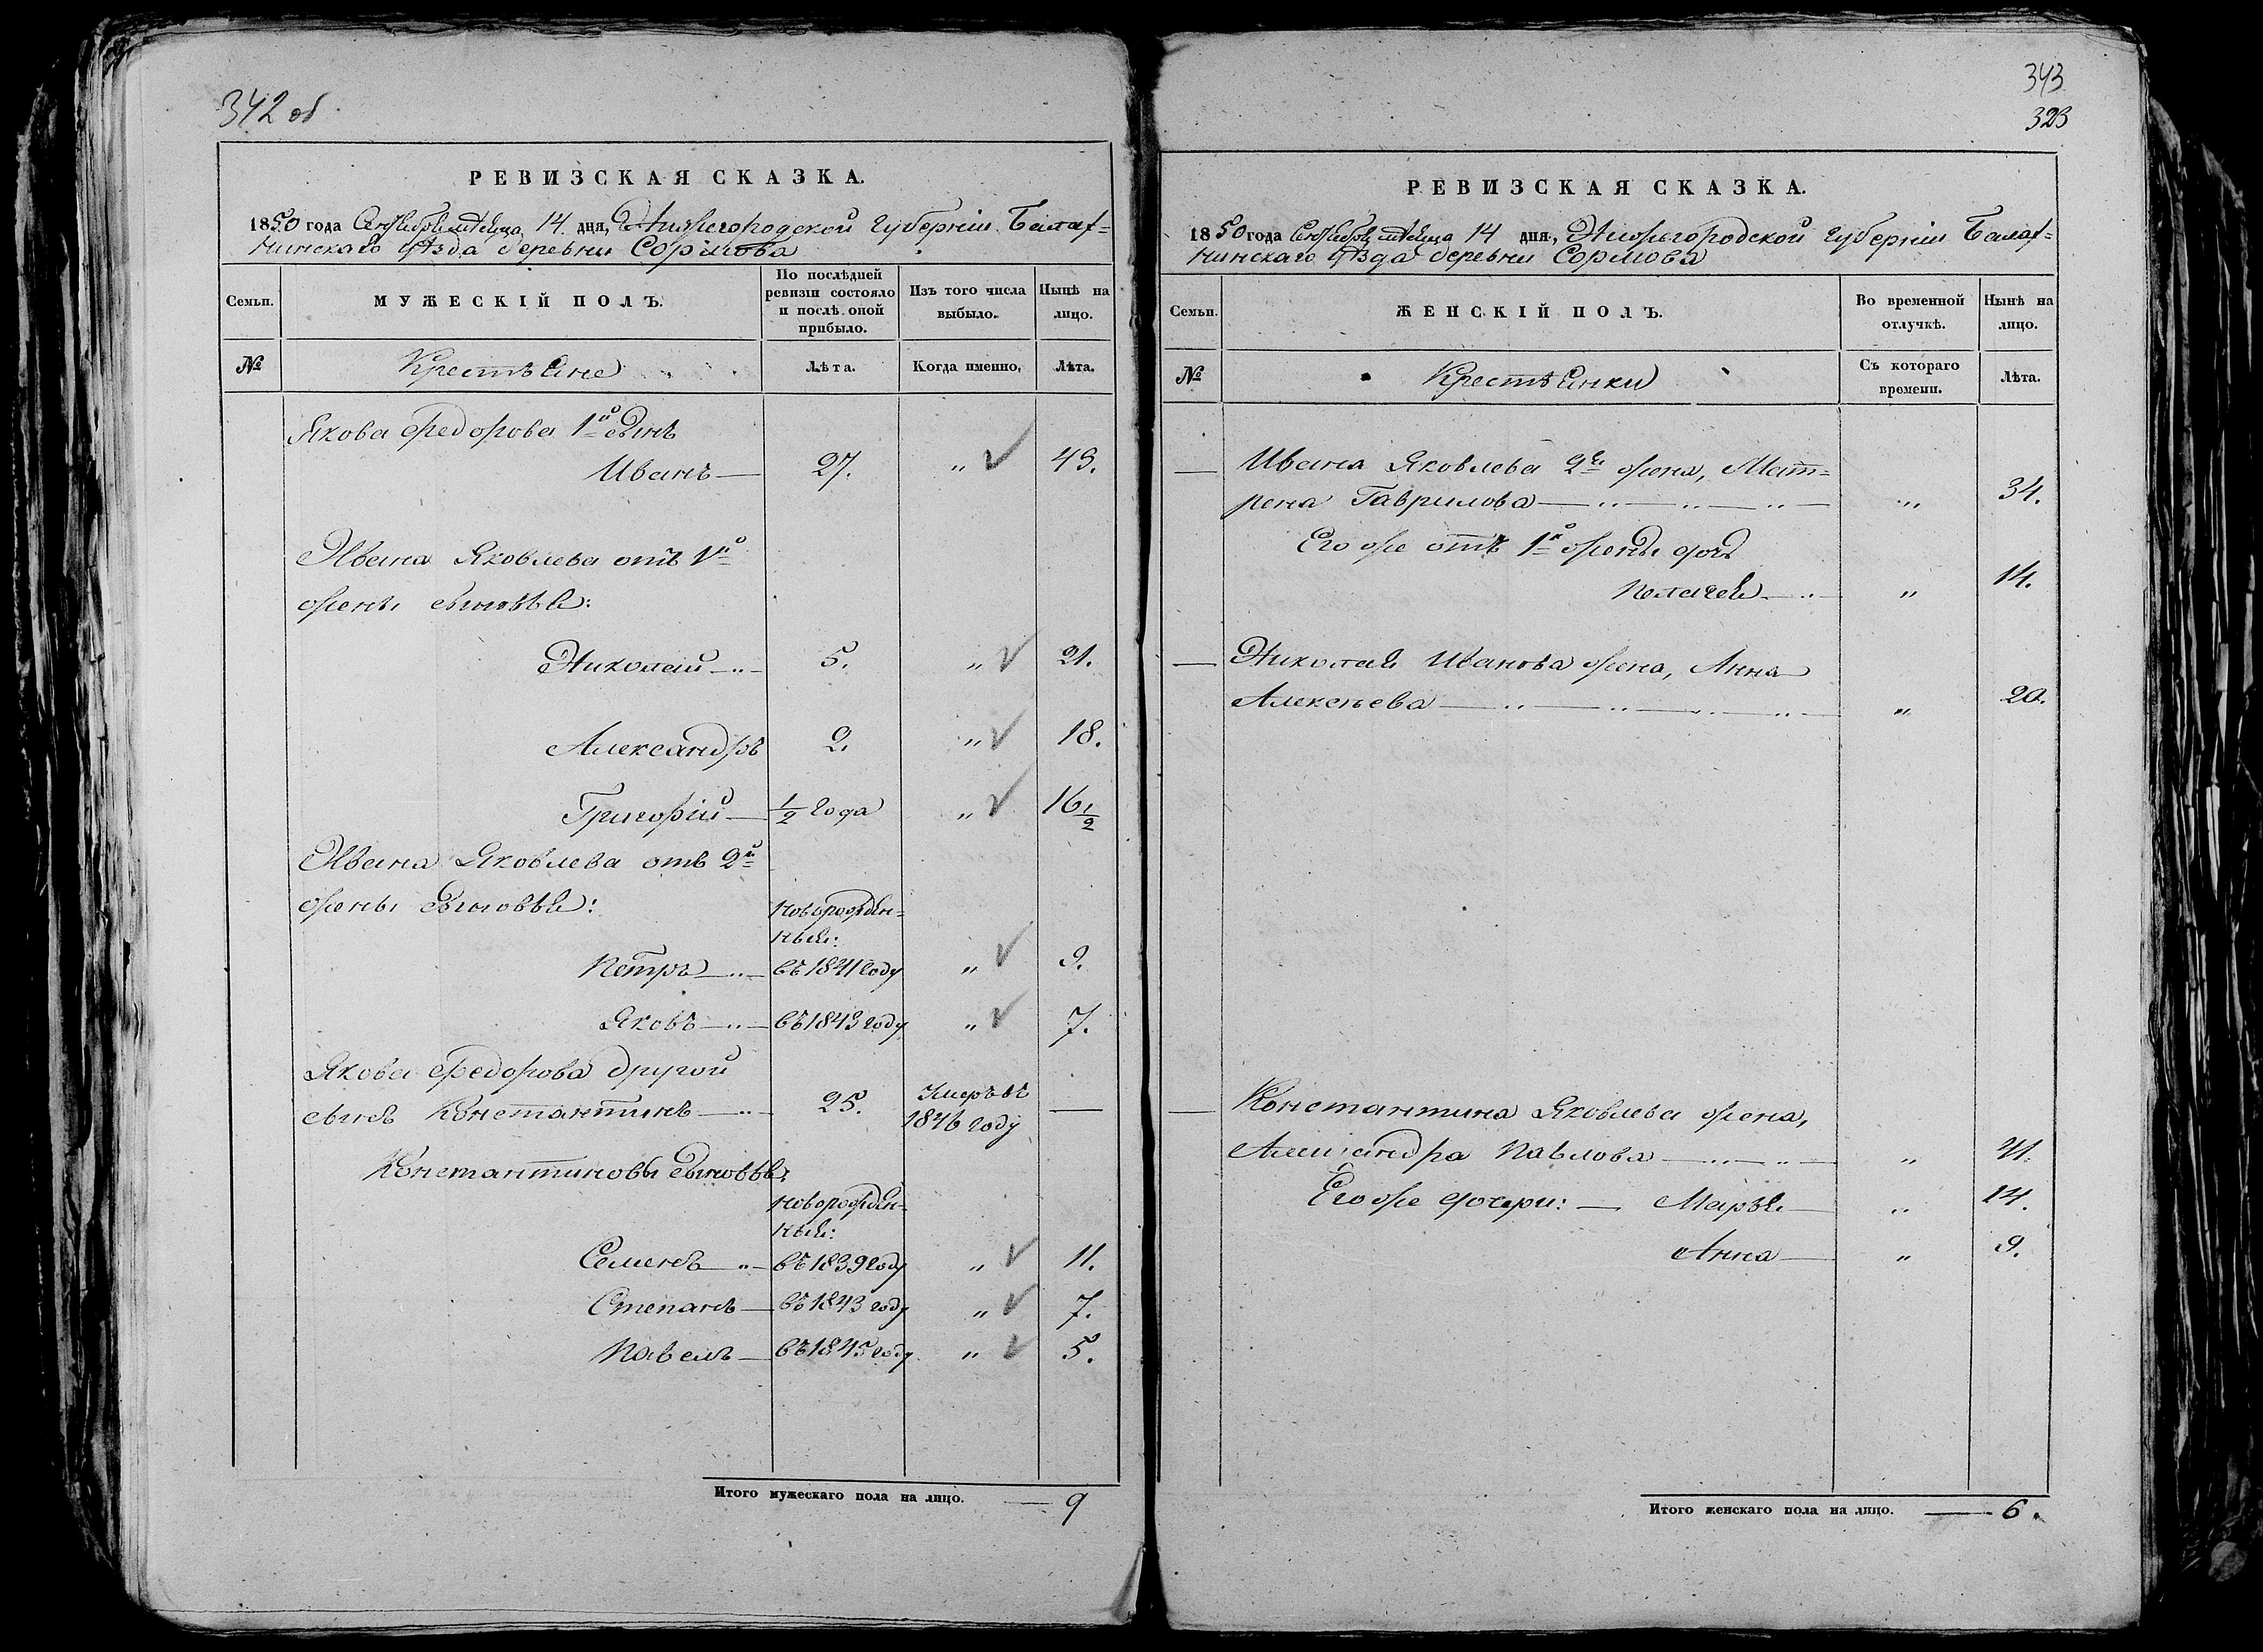 342 об
РЕВИЗСКАЯ СКАЗКА.
1850 года Сентября мѣсяца 14 дня, Нижегородской Губерніи Балах-
нинскаго уѣзда деревни Сормова
Семьи.
МУЖЕСКІЙ ПОЛЪ.
По послѣдней
ревизіи состояло
и послѣ оной
прибыло.
Изъ того числа
выбыло.
Нынѣ на
лицо.
№
Крестьяне
Лѣта.
Когда именно,
Лѣта.
Якова Федорова 1й сынъ
Иванъ — 27. „ 43.
Ивана Яковлева отъ 1й
жены сыновья:
Николай 5. „ 21.
Александръ 2. „ 18.
Григорій — 1/2 года „ 16 1/2
Ивана Яковлева отъ 2й
жены сыновья:
Новорожден-
ныя:
Петръ въ 1841 году „ 9.
Яковъ въ 1843 году „ 7.
Якова Федорова другой
сынъ Константинъ 25. Умеръ въ
1846 году —
Константиновы сыновья:
Новорожден-
ныя:
Семенъ въ 1839 году „ 11.
Степанъ — въ 1843 году „ 7.
Павелъ — въ 1845 году „ 5.
Итого мужескаго пола на лицо. — 9
343
323
РЕВИЗСКАЯ СКАЗКА.
1850 года Сентября мѣсяца 14 дня, Нижегородской Губерніи Балах-
нинскаго уѣзда деревни Сормова
Семьи.
ЖЕНСКІЙ ПОЛЪ.
Во временной
отлучкѣ.
Нынѣ на
лицо.
№
Крестьянки
Съ котораго
времени.
Лѣта.
— Ивана Яковлева 2я жена, Мат-
рена Гаврилова „ 34.
Его же отъ 1й жены дочь
Пелагея „ 14.
— Николая Иванова жена, Анна
Алексѣева „ 20.
— Константина Яковлева жена,
Александра Павлова „ 41.
Его же дочери: — Марья — „ 14.
Анна — „ 9.
Итого женскаго пола на лицо. — 6.